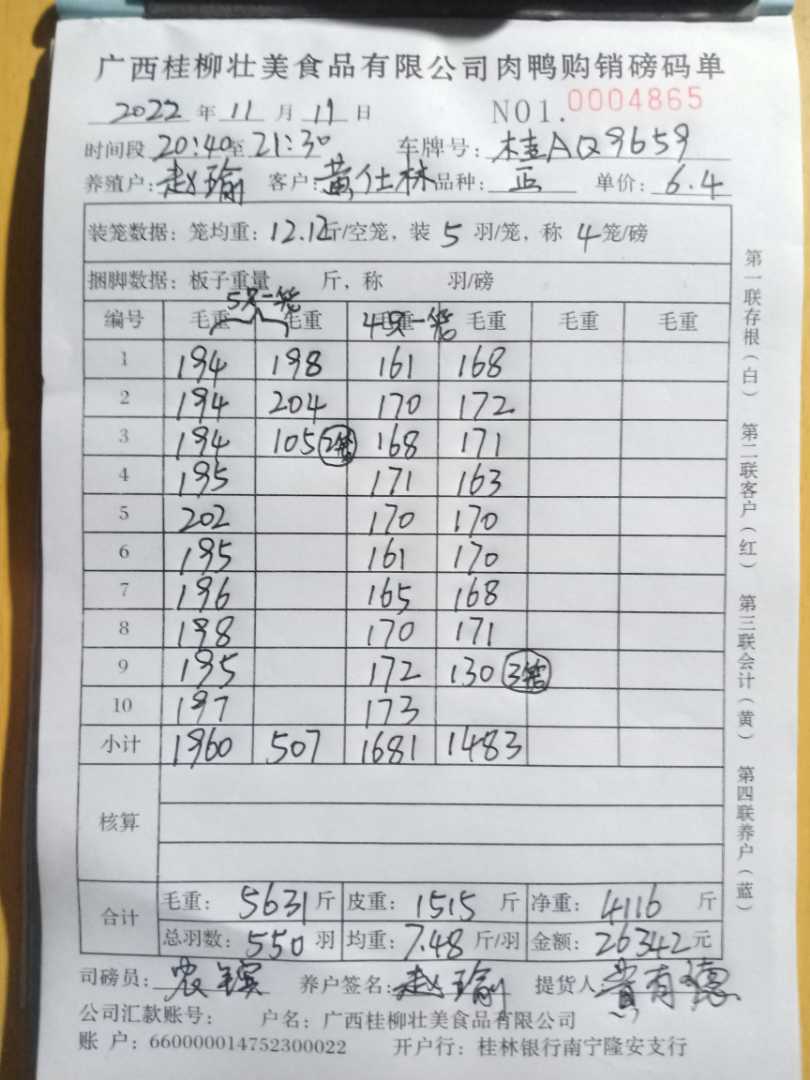 广西桂柳壮美食品有限公司肉鸭购销磅码单
2022 年 11 月 19 日 NO1. 0004865
时间段 20:40 至 21:30 车牌号: 桂AQ9659
养殖户: 赵瑜 客户: 黄仕林 品种: 正 单价: 6.4
装笼数据: 笼均重: 12.12 斤/空笼, 装 5 羽/笼, 称 4 笼/磅
捆脚数据: 板子重量 斤, 称 羽/磅
5只一笼 4只一笼
编号 毛重 毛重 毛重 毛重 毛重 毛重
1 194 198 161 168
2 194 204 170 172
3 194 105 2笼 168 171
4 195 171 163
5 202 170 170
6 195 161 170
7 196 165 168
8 198 170 171
9 195 172 130 3笼
10 197 173
小计 1960 507 1681 1483
核算
合计 毛重: 5631 斤 皮重: 1515 斤 净重: 4116 斤
总羽数: 550 羽 均重: 7.48 斤/羽 金额: 26342 元
司磅员: 农 养户签名: 赵瑜 提货人: 黄有德
公司汇款账号: 户名: 广西桂柳壮美食品有限公司
账 户: 660000014752300022 开户行: 桂林银行南宁隆安支行
第一联存根(白) 第二联客户(红) 第三联会计(黄) 第四联养户(蓝)